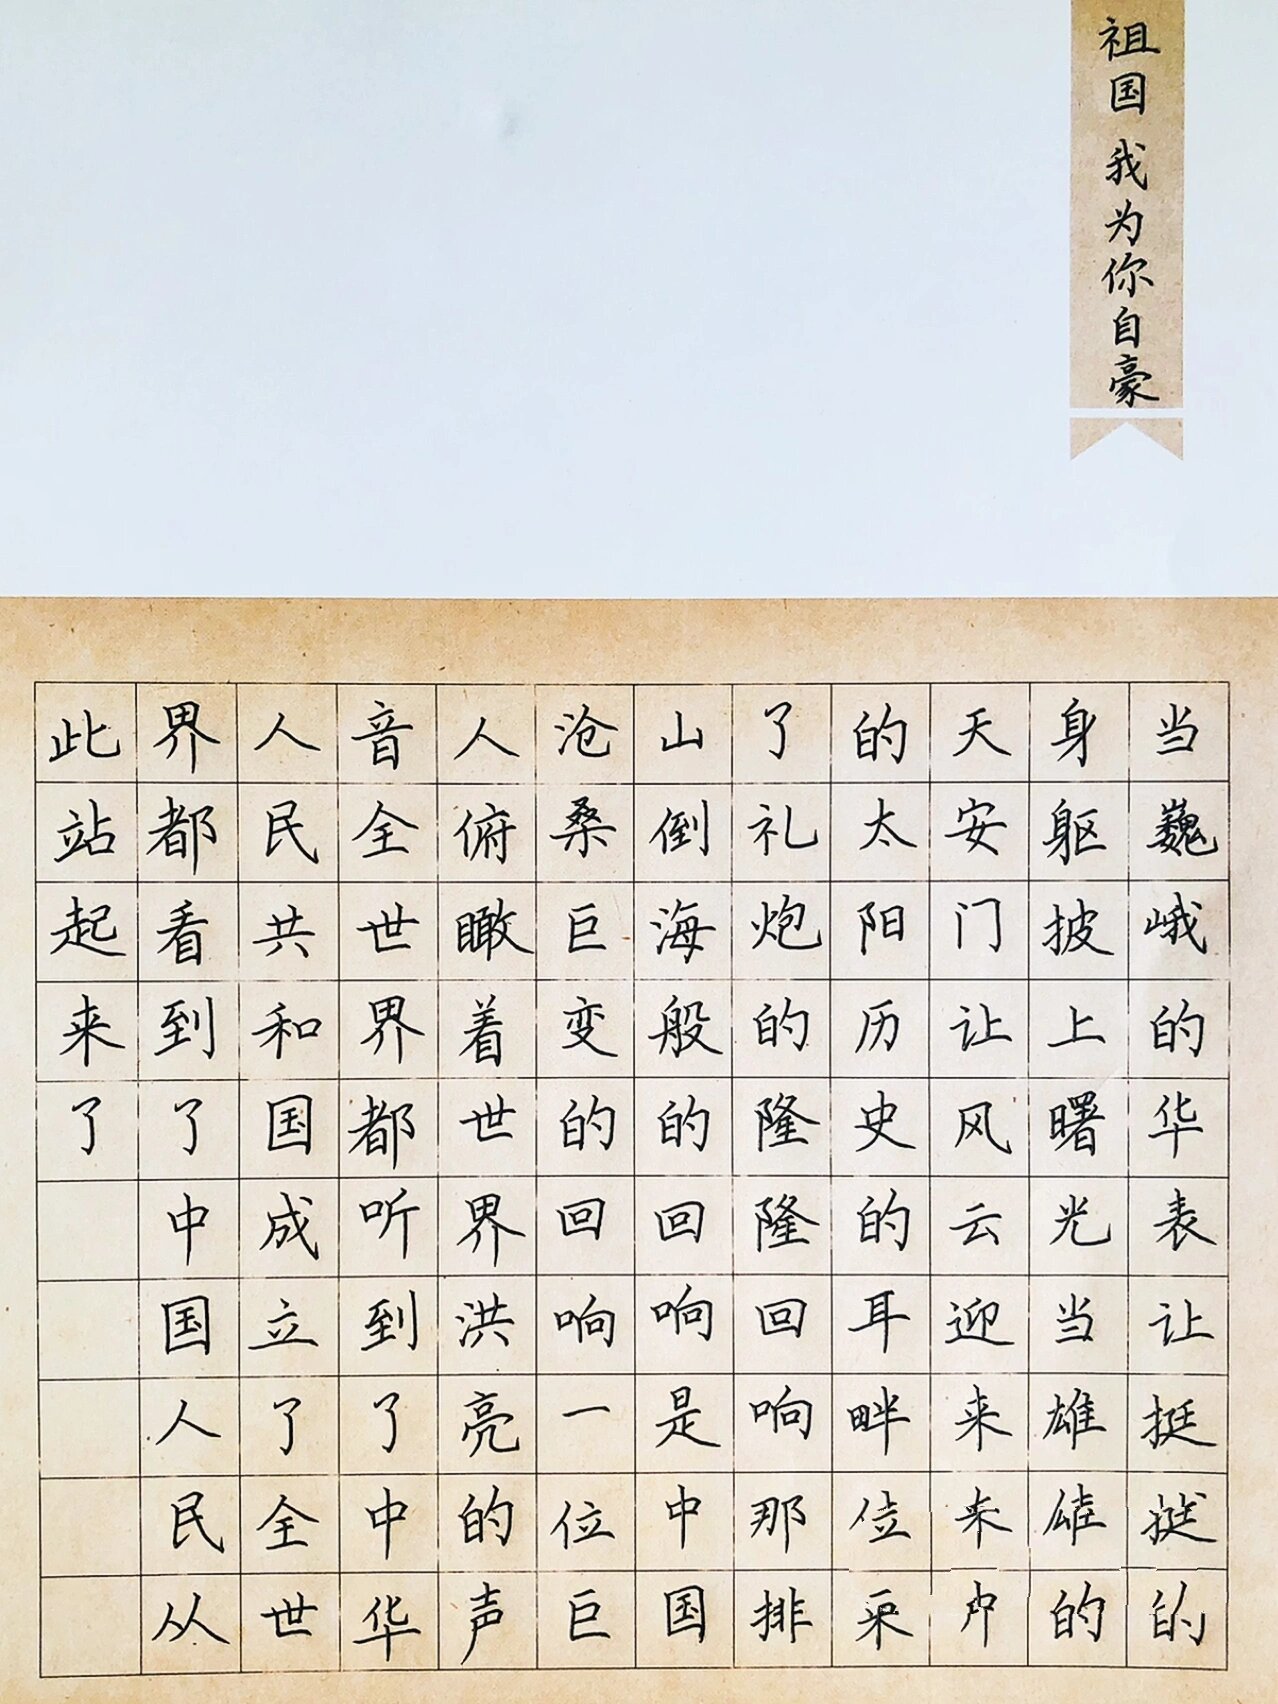 祖国 我为你自豪
当巍峨的华表让挺的
身躯披上曙光当雄的
天安门让风云迎来
的太阳历史的耳畔
了礼炮的隆隆回响那排
山倒海般的回响是中国
沧桑巨变的回响一位巨
人俯瞰着世界洪亮的声
音全世界都听到了中华
人民共和国成立了全世
界都看到了中国人民从
此站起来了